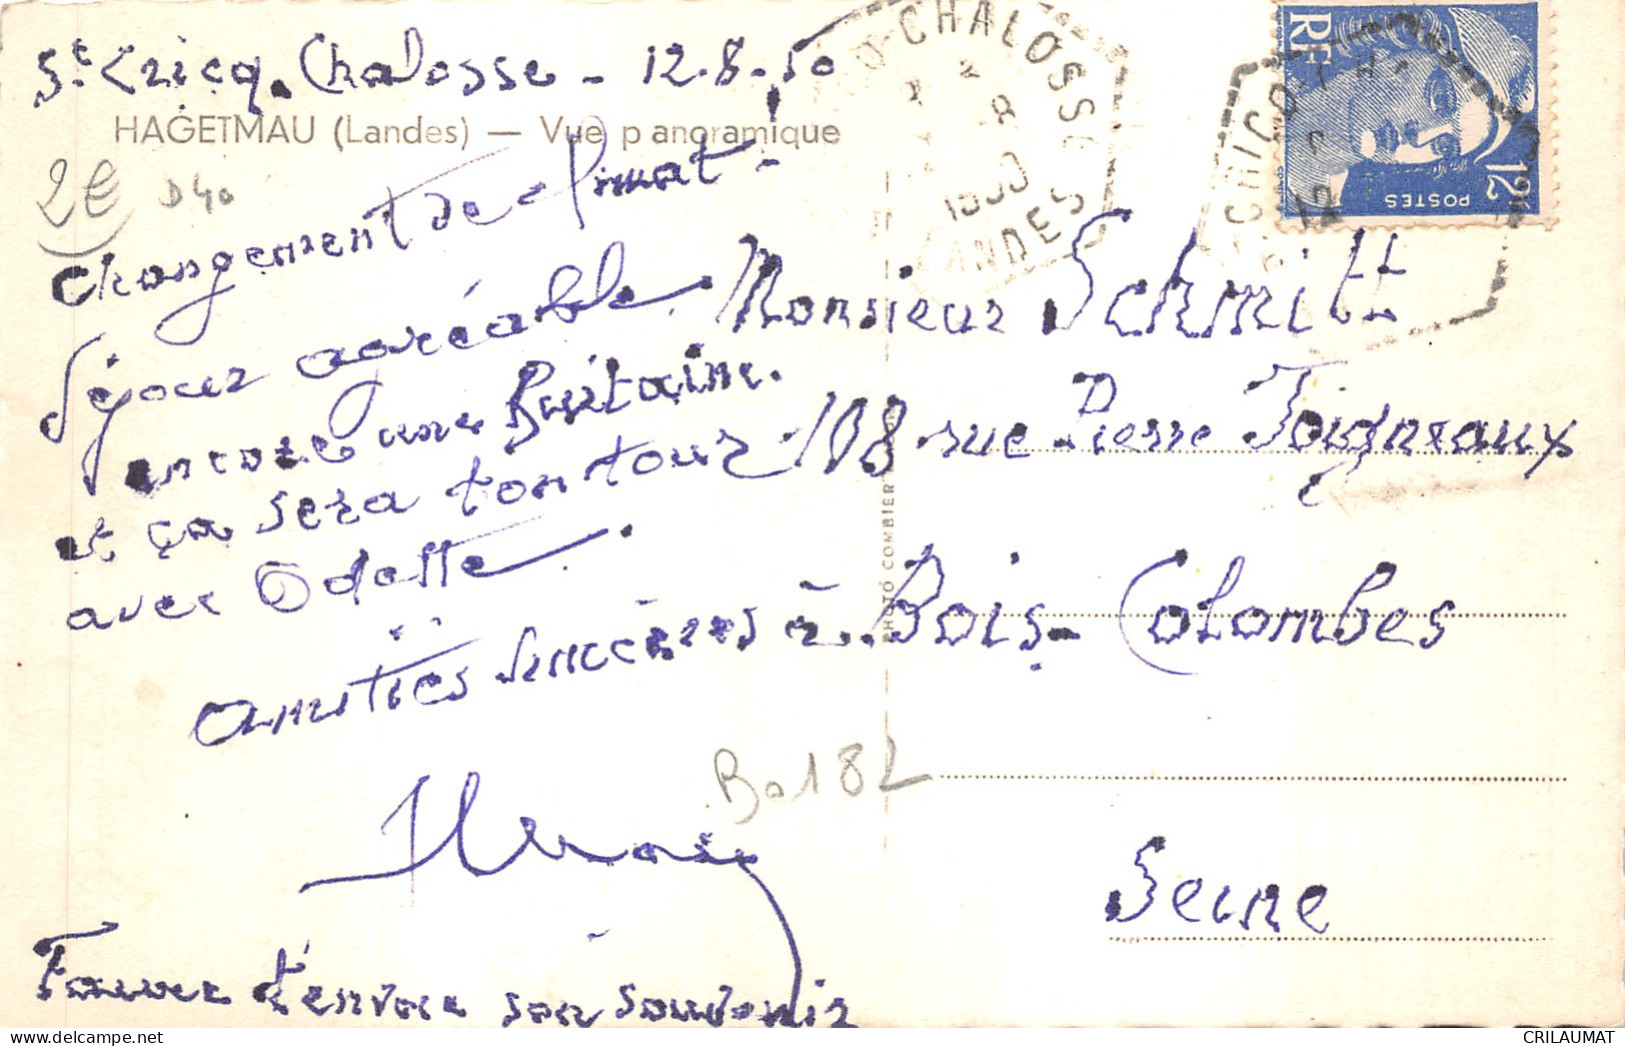 St Cricq. Chalosse - 12.8.50
HAGETMAU (Landes) — Vue panoramique
2€ D40
Changement de climat -
Séjour agréable.
encore une Quitaine.
et ça sera ton tour
avec Odette.
amitiés sincères à
t'envoie son
Bo182
Monsieur Schmitt
108 rue Pierre Joigneaux
Bois-Colombes
Seine
PHOTO COMBIER
CHALOSSE
1950
LANDES
RF
POSTES
12F
CRILAUMAT